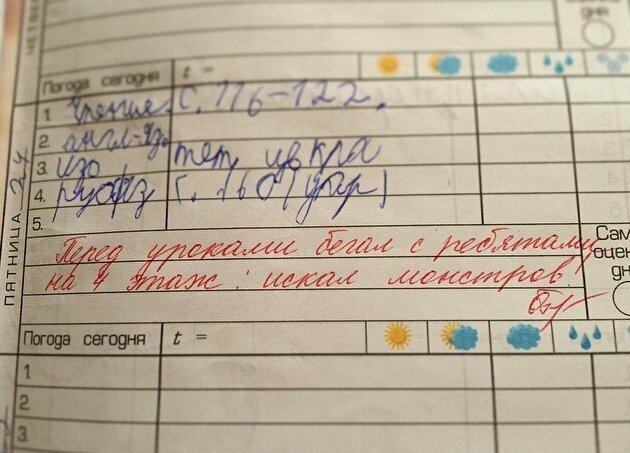 ЧЕТВЕ
оценка
дня
Погода сегодня t =
1 Чтение с. 116-122.
2. англ-яз.
3. изо
4. с. 160 (упр)
5.
ПЯТНИЦА 24
Перед уроками бегал с ребятами
на 4 этаж: искал монстров.
Сам
оцен
дн
Погода сегодня t =
1
2
3.